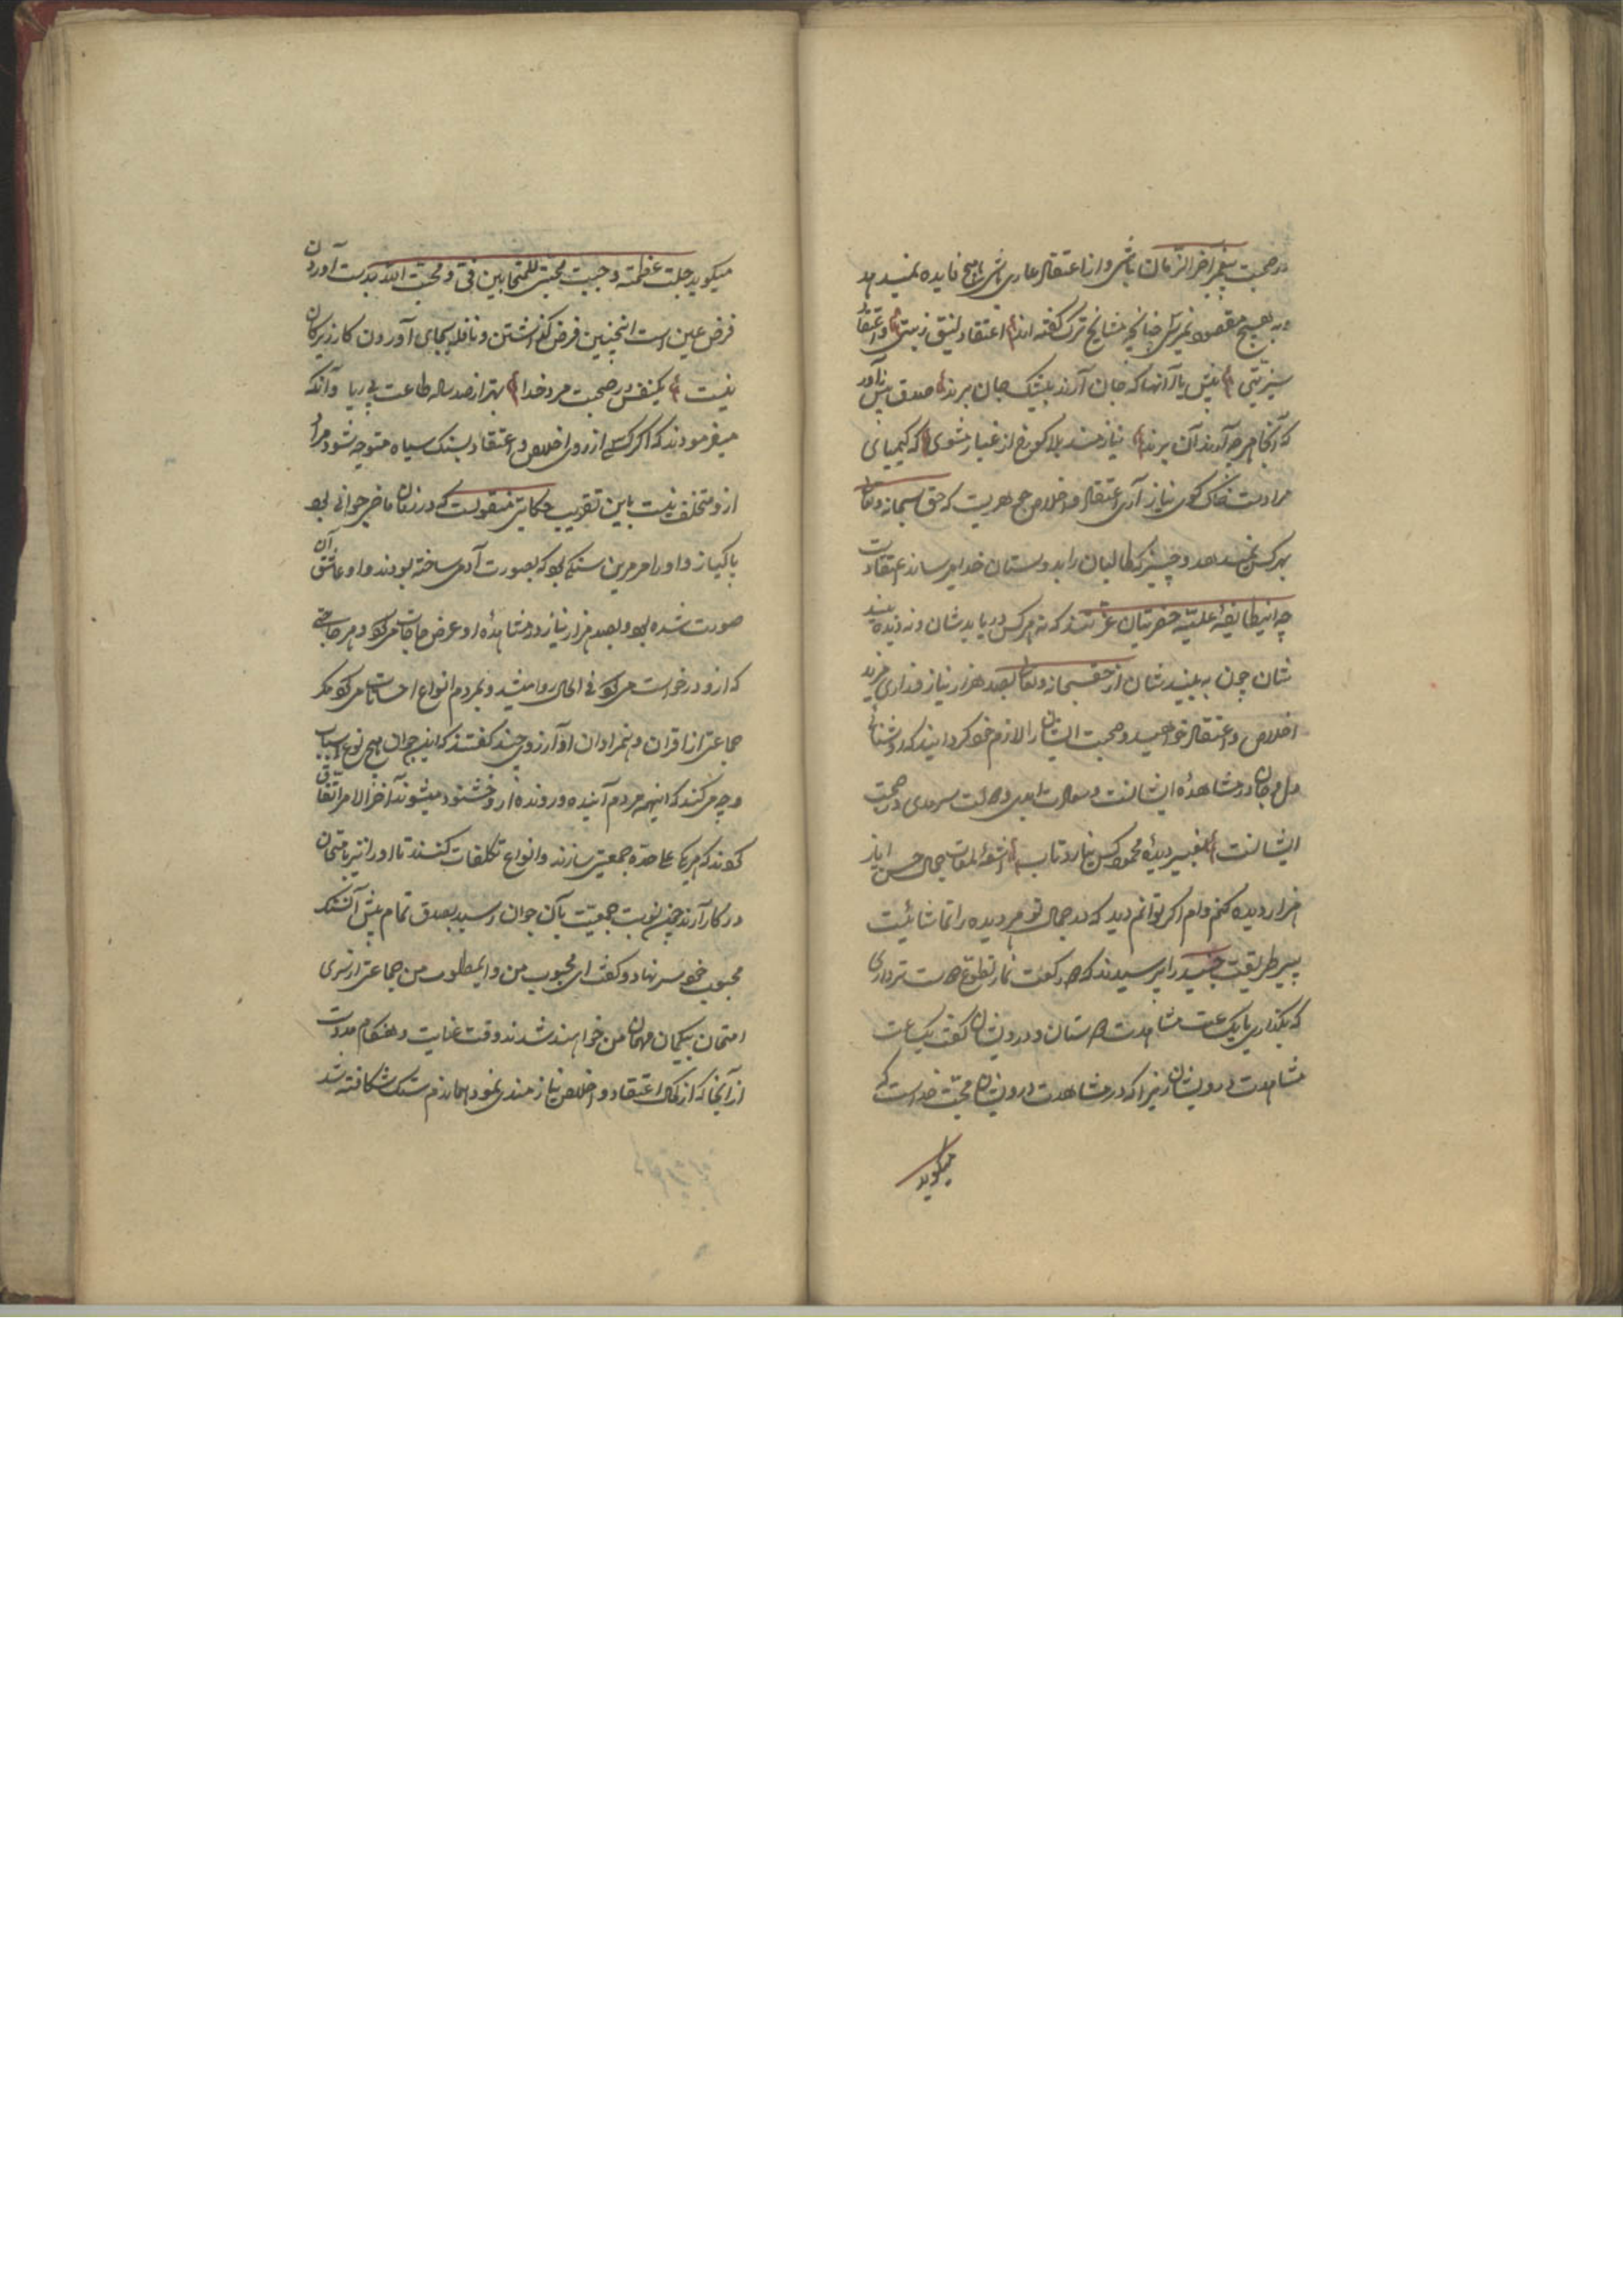 در صحبت پیغمبر آخر الزمان باشی و از اعتقاد عاری باشی با هیچ فایده نمیدهد
و به هیچ مقصود نمیرسی چنانچه مشایخ ترک گفته اند اعتقاد
پیش یار آنها که جان آرند بیشک جان برند صدق پیش آور
که آنجا هر چه آرند آن برند نیازمند بلا کو رخ از غبار مشوی که کیمیای
مرادست خاک کوی نیاز آری اعتقاد و اخلاص جوهریست که حق سبحانه و تعالی
بهر کس نمیدهد و چیزی که طالبان را بدوستان خدا میرساند اعتقادست
چه اینطایفهٔ علیه حضرتیان عزتند که نه هر کس دریابدشان و نه دیده بیند
شان چون به بینیدشان از حق سبحانه و تعالی بصد هزار نیاز و زاری مزید
اخلاص و اعتقاد خواهید و صحبت ایشان را لازم خود گردانید که روشنائی
دل و جان در مشاهدهٔ ایشانست و سعادت ابدی و دولت سرمدی در صحبت
ایشانست بغیر دیدهٔ محمود کس نیارد تاب اشعهٔ لمعات جمال حسن ایاز
هزار دیده کنم وام اگر توانم دید که در جمال تو هر دیده را تماشائیست
پیر طریقت جنید را پرسیدند که دو رکعت نماز تطوع دوست تر داری
که بگذاری یا یک ساعت مشاهدت دوستان و درویشان گفت یک ساعت
مشاهدت درویشان زیرا که در مشاهدت درویشان محبت خداست که
میگوید
میگوید جلت عظمته وجبت محبتی للمتحابین فی و محبت الله بدست آوردن
فرض عین است اینچنین فرض گذاشتن و نافله بجای آوردن کار زیرکان
نیست یکنفس در صحبت مرد خدا بهتر از صد ساله طاعت بی ریا و آنکه
میفرمودند که اگر کسی از روی اخلاص و اعتقاد بسنگ سیاه متوجه شود مراد
ازو متخلف نیست باین تقریب حکایتی منقولست که در زمان ماضی جوانی بود
پاکباز و او را مرمرین سنگی بود که بصورت آدمی ساخته بودند و او عاشق آن
صورت شده بود و بصد هزار نیاز در مشاهدهٔ او عرض حاجات میکرد و هر حاجتی
که ازو درخواست میکرد فی الحال روا میشد و بمردم انواع احسانات میکرد مگر
جماعتی از اقران و همزادان او آرزوی چند گفتند که این جوان بهیچ نوع اسباب
و چه میکند که اینهمه مردم آینده و رونده ازو خشنود میشوند آخر الامر اتفاق
کردند که هر یک علاحده جمعیتی سازند و انواع تکلفات کنند تا او را نیز بامتحان
در کار آرند چون نوبت جمعیت بآن جوان رسید بصدق تمام پیش آن سنگ
محبوب خود سر نهاد و گفت ای محبوب من و ای مطلوب من جماعتی از سر
امتحان بیگمان مهمان من خواهند شدند وقت عنایت و هنگام مدد است
از آنجا که از کمال اعتقاد و اخلاص نیازمندی نمود همان دم سنگ شکافته شد